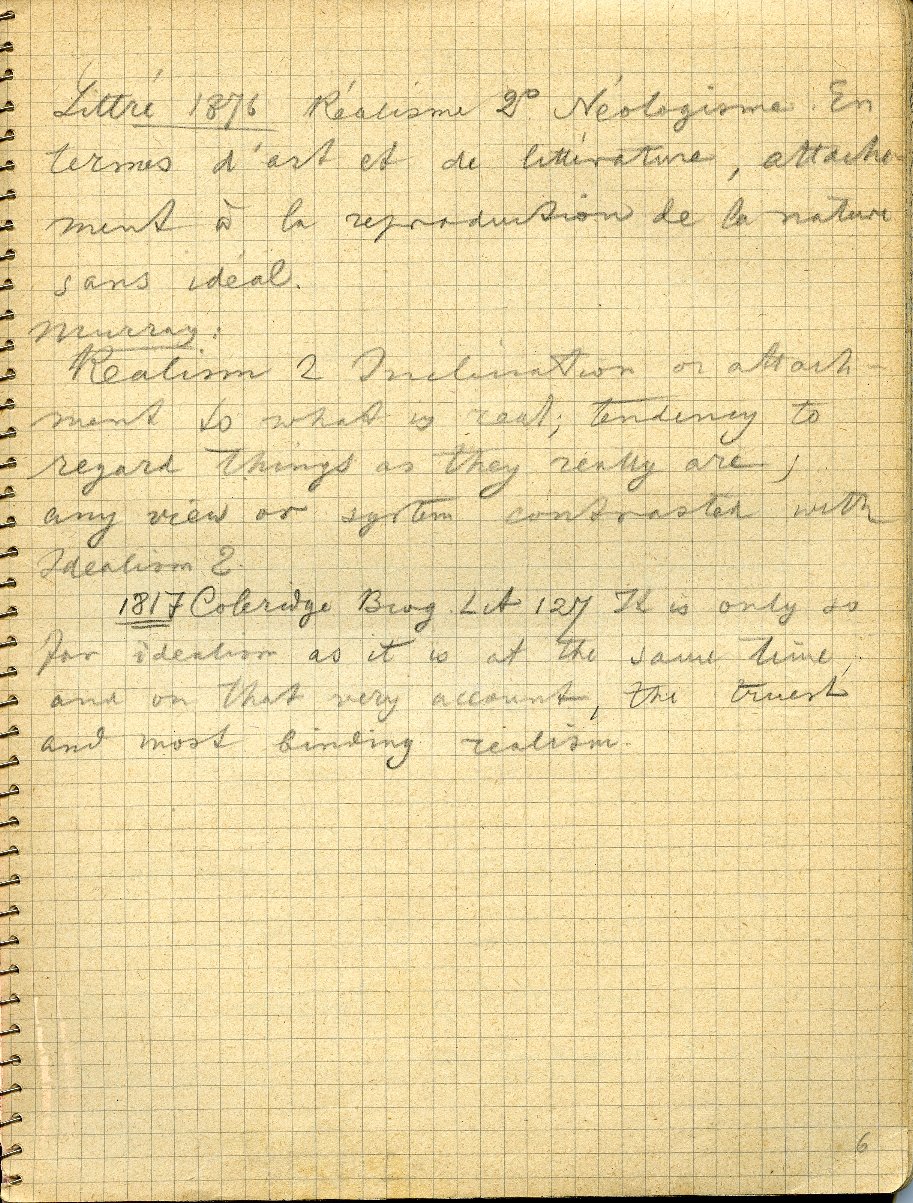 Littré 1876 Réalisme 2º Néologisme. En
termes d'art et de littérature, attache-
ment à la reproduction de la nature
sans idéal.
Murray:
Realism 2 Inclination or attach-
ment to what is real; tendency to
regard things as they really are;
any view or system contrasted with
Idealism 2.
1817 Coleridge Biog. Lit 127 It is only so
far idealism as it is at the same time,
and on that very account, the truest
and most binding realism.
6